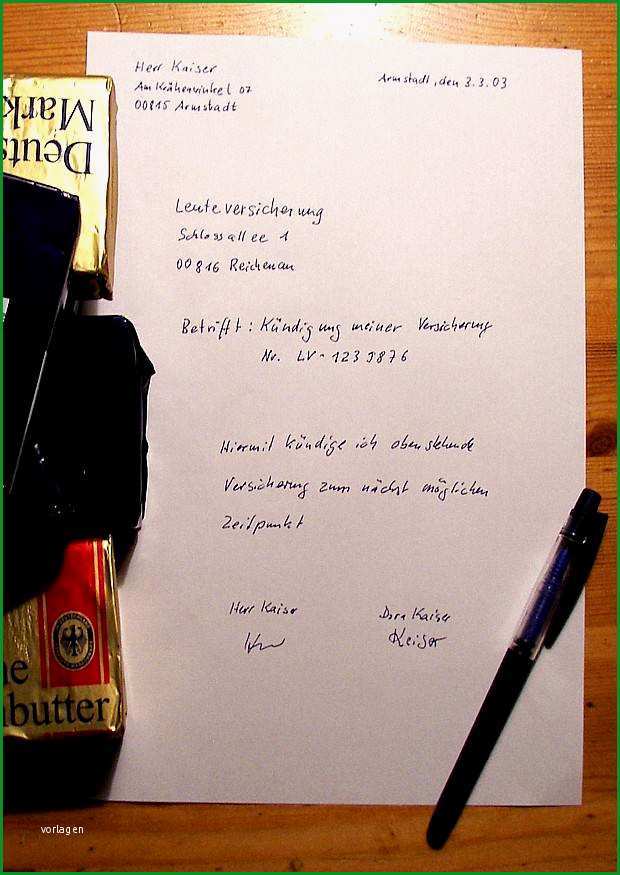 Herr Kaiser
Am Krähenwinkel 07
00815 Armstadt
Armstadt, den 3.3.03
Leute versicherung
Schlossallee 1
00816 Reichenau
Betrifft: Kündigung meiner Versicherung
Nr. LV-1239876
Hiermit kündige ich obenstehende
Versicherung zum nächst möglichen
Zeitpunkt
Herr Kaiser
Dora Kaiser
Keiser
Deuts
Mark
e
butter
vorlagen